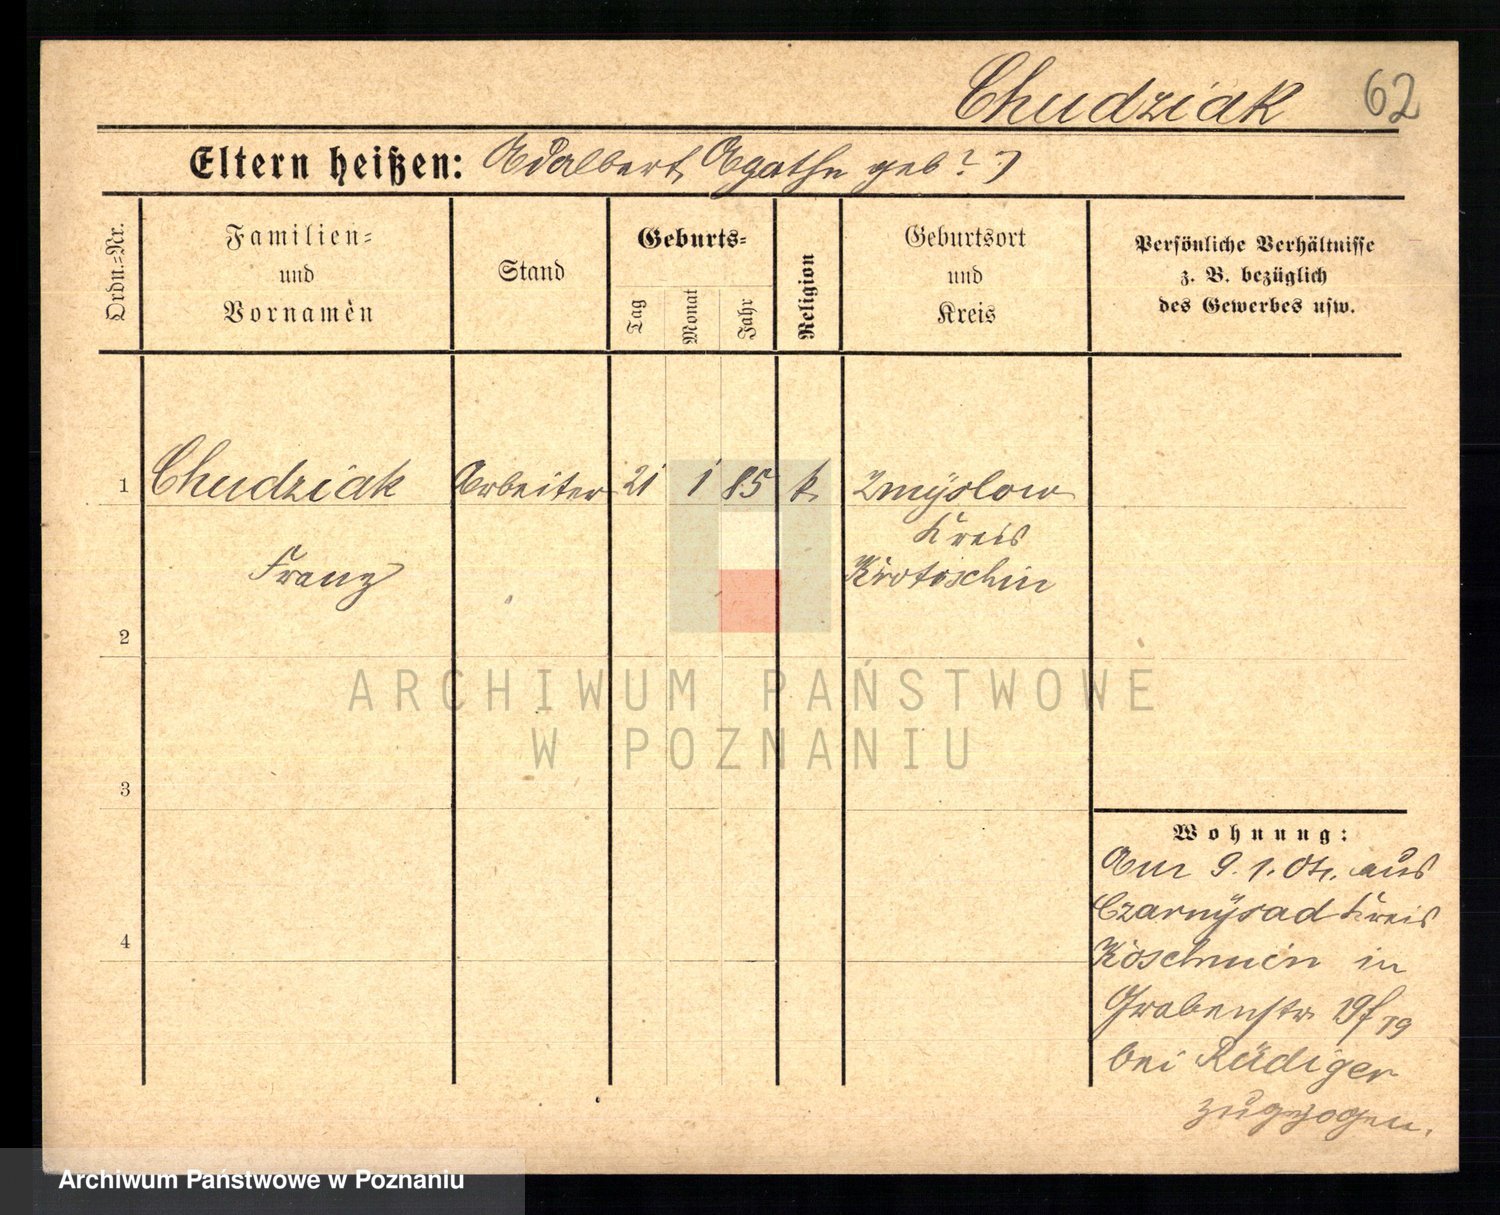 Chudziak 62
Eltern heißen: Adalbert, Agathe geb ? )
Ordn.-Nr.
Familien-
und
Vornamen
Stand
Geburts-
Tag
Monat
Jahr
Religion
Geburtsort
und
Kreis
Persönliche Verhältnisse
z. B. bezüglich
des Gewerbes usw.
1 Chudziak Arbeiter 21 1 85 k. Zmyslow
Kreis
Franz Krotoschin
2
ARCHIWUM PAŃSTWOWE
W POZNANIU
3
Wohnung:
Am 9. 1. aus
Czarnysad Kreis
4
Koschmin in
Grabenstr. 19
bei Rüdiger
zugezogen.
Archiwum Państwowe w Poznaniu